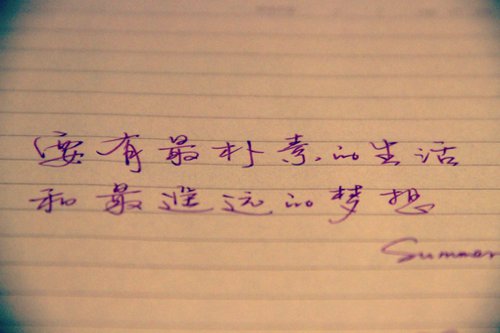 要有最朴素的生活
和最遥远的梦想
Summer